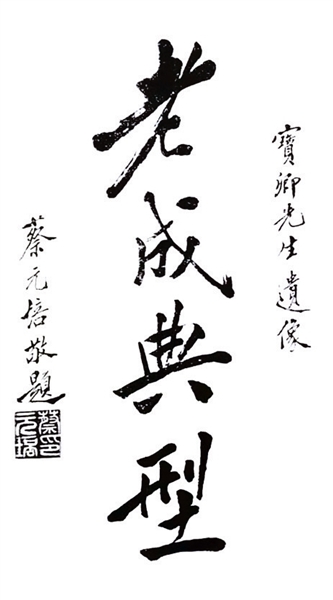 寶卿先生遺像
老成典型
蔡元培敬題
蔡元培印